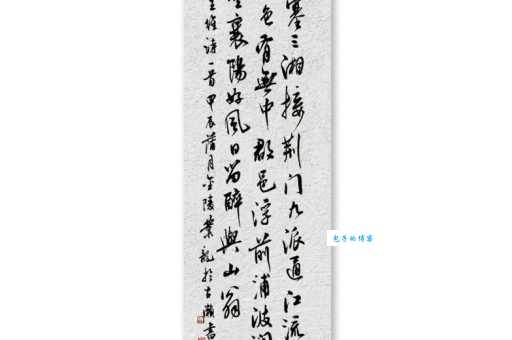 塞三湘接荆门九派通江流
色有无中郡邑浮前浦波澜
襄阳好风日留醉与山翁
王维诗一首甲辰蒲月金陵叶龙于古濑书
包子的博客